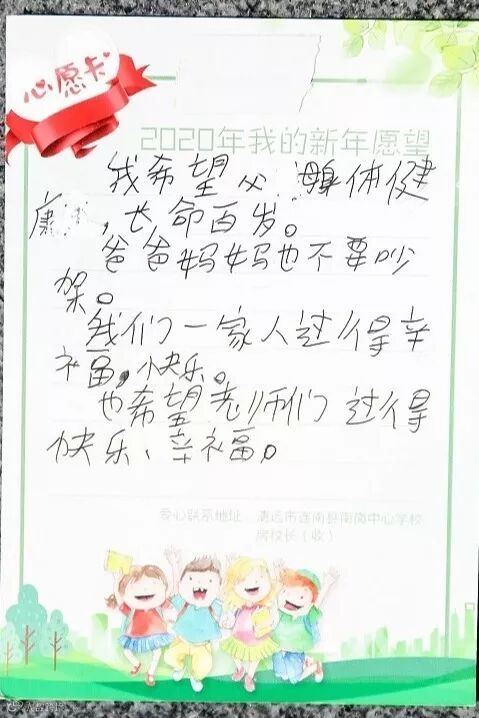 心愿卡
2020年我的新年愿望
我希望父母身体健
康，长命百岁。
爸爸妈妈也不要吵
架。
我们一家人过得辛
福，快乐。
也希望老师们过得
快乐、辛福。
爱心联系地址：清远市连南县南岗中心学校
房校长（收）